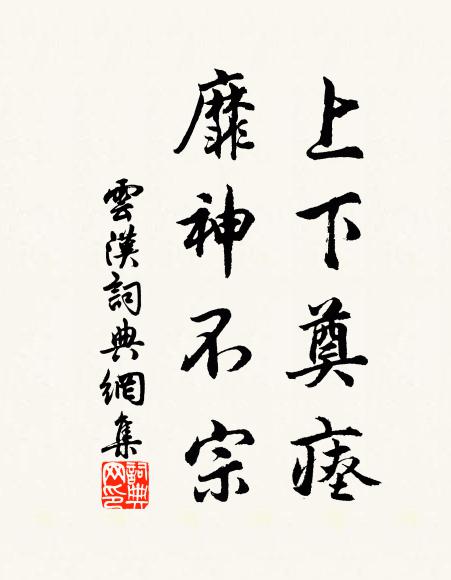 上下奠瘞
靡神不宗
雲漢詞典網集
詞典网印